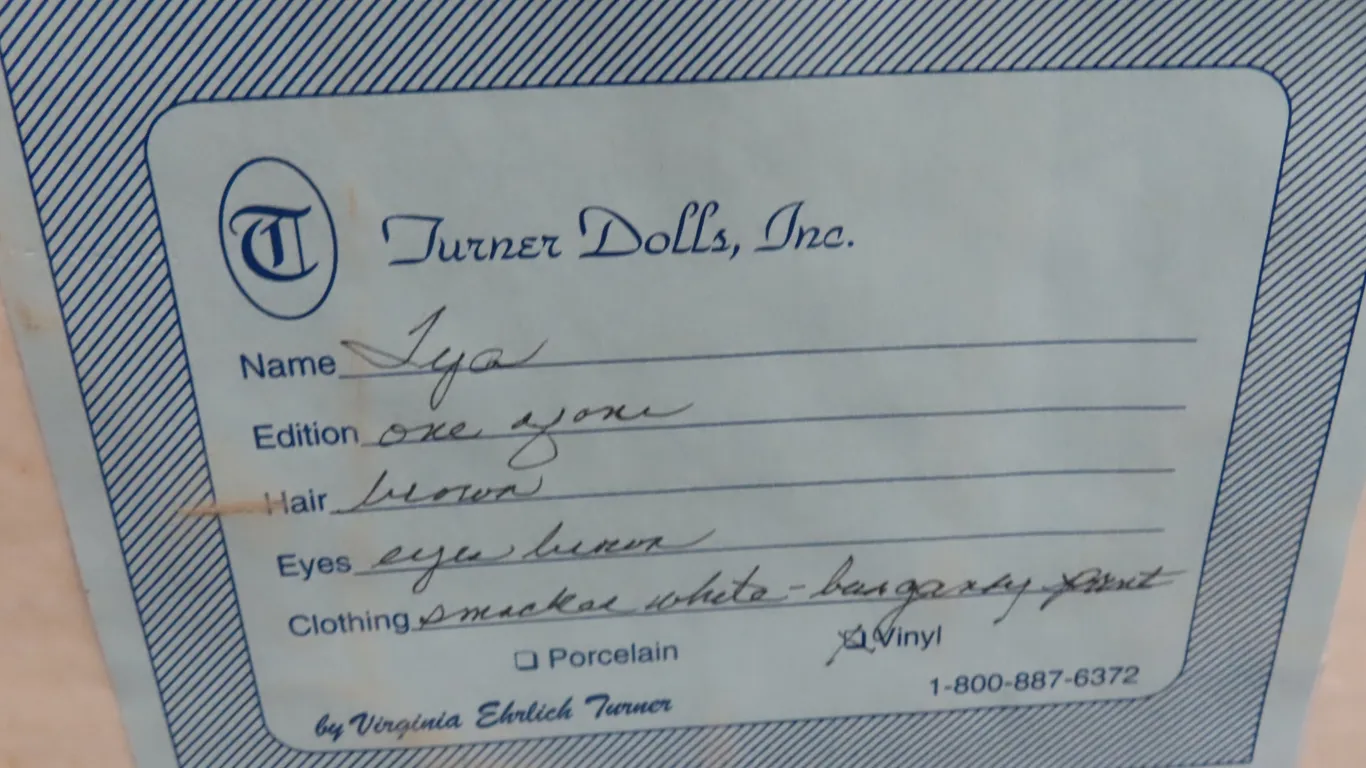 T Turner Dolls, Inc.
Name Iya
Edition one of one
Hair brown
Eyes eyes brown
Clothing white - burgandy print
Porcelain Vinyl
1-800-887-6372
by Virginia Ehrlich Turner